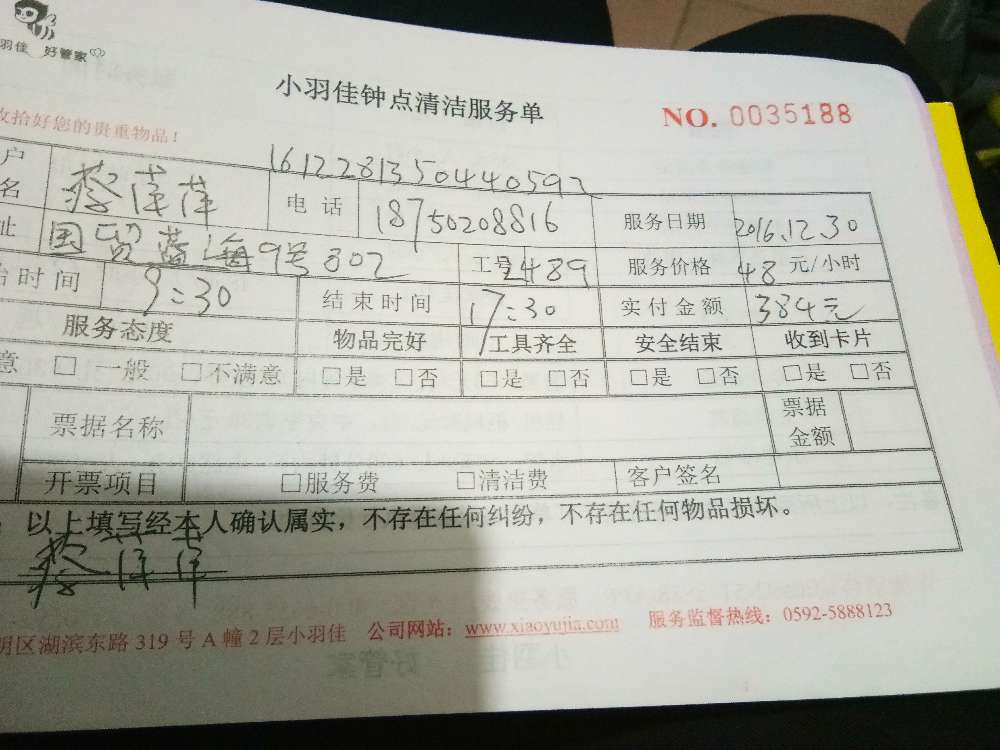 羽佳 好管家
小羽佳钟点清洁服务单
NO. 0035188
收拾好您的贵重物品！
1612281350440592
户名 蔡萍萍 电话 18750208816 服务日期 2016.12.30
址 国贸蓝海9号802 工号 489 服务价格 48 元/小时
始时间 9:30 结束时间 17:30 实付金额 384元
服务态度 物品完好 工具齐全 安全结束 收到卡片
意 □ 一般 □不满意 □是 □否 □是 □否 □是 □否 □是 □否
票据名称 票据金额
开票项目 □服务费 □清洁费 客户签名
以上填写经本人确认属实，不存在任何纠纷，不存在任何物品损坏。
蔡萍萍
明区湖滨东路 319 号 A 幢 2 层小羽佳 公司网站：www.xiaoyujia.com 服务监督热线：0592-5888123